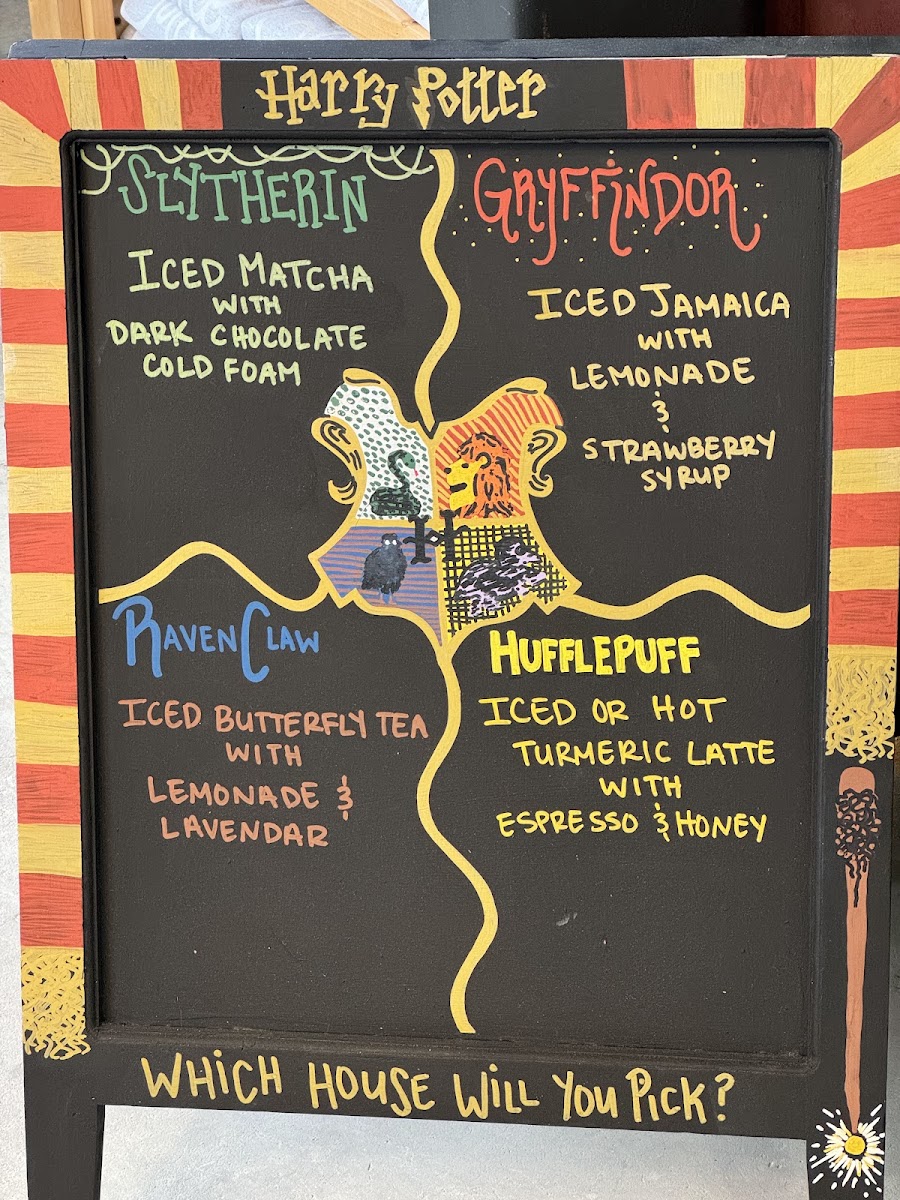 Harry Potter
SLYTHERIN
ICED MATCHA
WITH
DARK CHOCOLATE
COLD FOAM
GRYFFINDOR
ICED JAMAICA
WITH
LEMONADE
&
STRAWBERRY
SYRUP
H
RAVENCLAW
ICED BUTTERFLY TEA
WITH
LEMONADE &
LAVENDAR
HUFFLEPUFF
ICED OR HOT
TURMERIC LATTE
WITH
ESPRESSO & HONEY
WHICH HOUSE WILL YOU PICK?